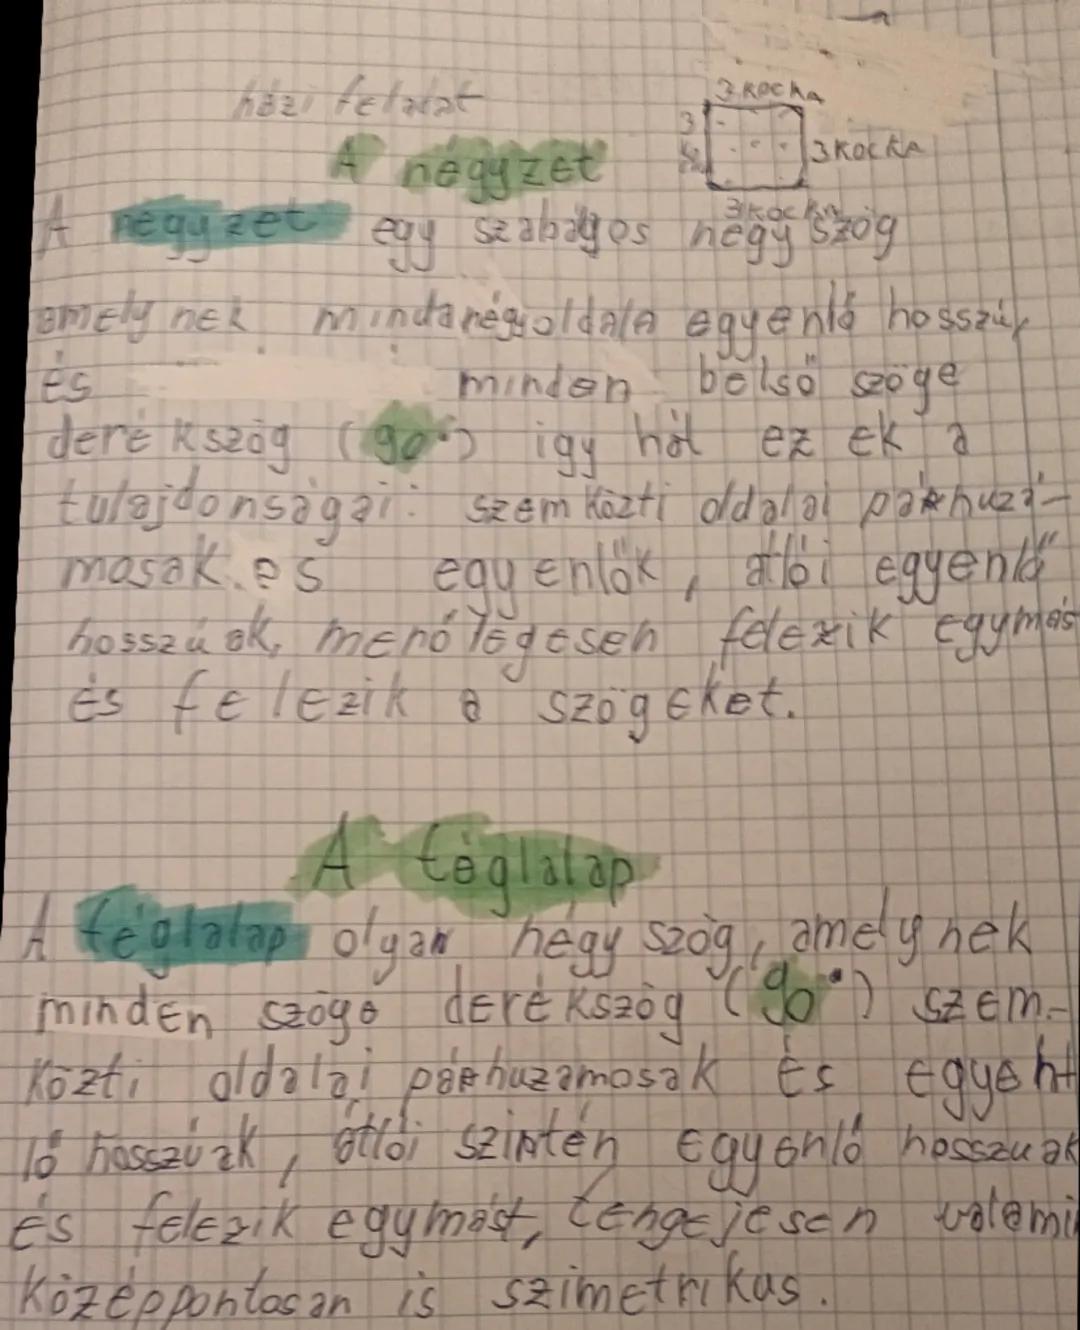 házi feladat
3 KOCKA
3
3 KOCKA
3 KOCKA
A négyzet
A négyzet egy szabályos négyszög
amelynek mindanégyoldala egyenlő hosszú,
és minden belső szöge
derékszög (90°) így hát ezek a
tulajdonságai: szemközti oldalai párhuza-
mosak.es egyenlők, átlói egyenlő
hosszúak, merőlegesen felezik egymás
és felezik a szögeket.
A téglalap
A téglalap olyan négyszög, amelynek
minden szöge derékszög (90°) szem-
közti oldalai párhuzamosak és egyen
lő hosszúak, átlói szintén egyenlő hosszuak
és felezik egymást, tengejesen valami
középpontosan is szimetrikus.